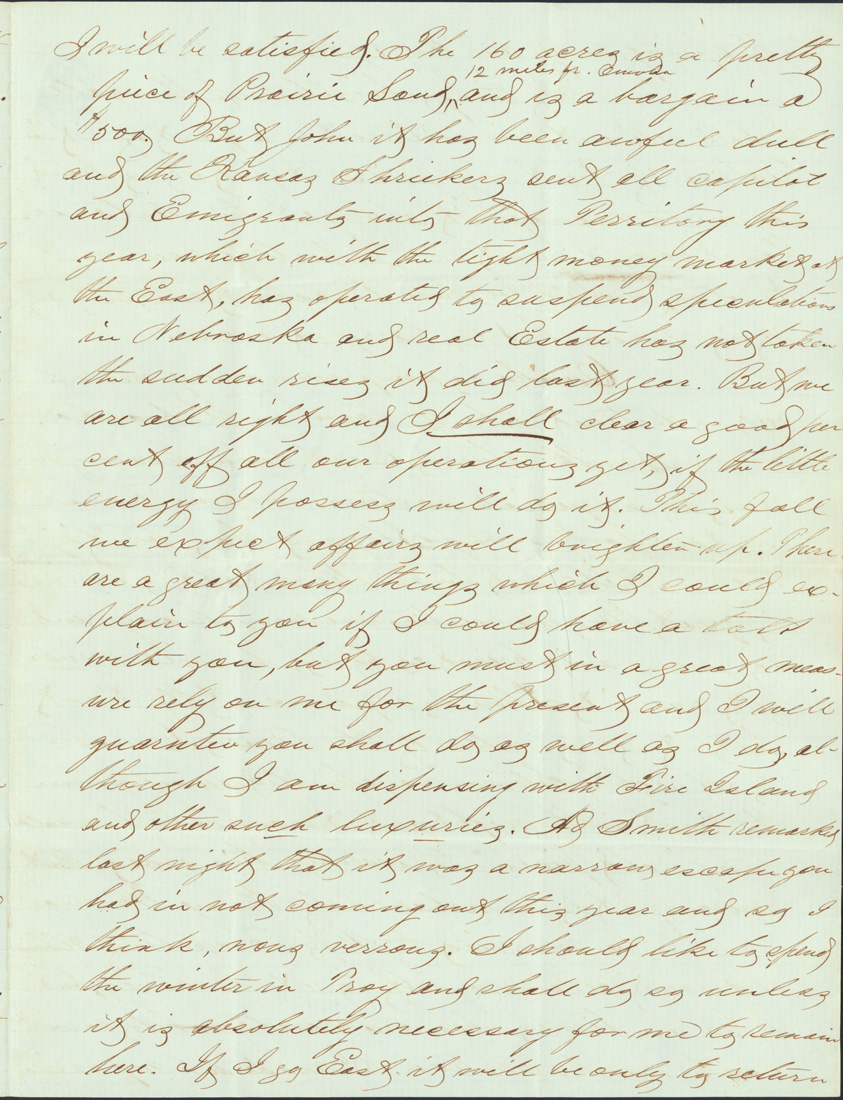 I will be satisfied. The 160 acres is a pretty
12 miles fr. Omaha
piece of Prairie Land, and is a bargain a
$500. But John it has been awful dull
and the Kansas Shriekers sent all capital
and Emigrants into that Territory this
year, which with the tight money market at
the East, has operated to suspend speculations
in Nebraska and real Estate has not taken
the sudden rises it did last year. But we
are all right and I shall clear a good per
cent off all our operations yet, if the little
energy I possess will do it. This fall
we expect affairs will brighten up. There
are a great many things which I could ex-
plain to you if I could have a talk
with you, but you must in a great meas-
ure rely on me for the present and I will
guarantee you shall do as well as I do, al-
though I am dispensing with Fire Island
and other such luxuries. As Smith remarked
last night that it was a narrow escape you
had in not coming out this year and so I
think, nous verrons. I should like to spend
the winter in Troy and shall do so unless
it is absolutely necessary for me to remain
here. If I go East it will be only to return